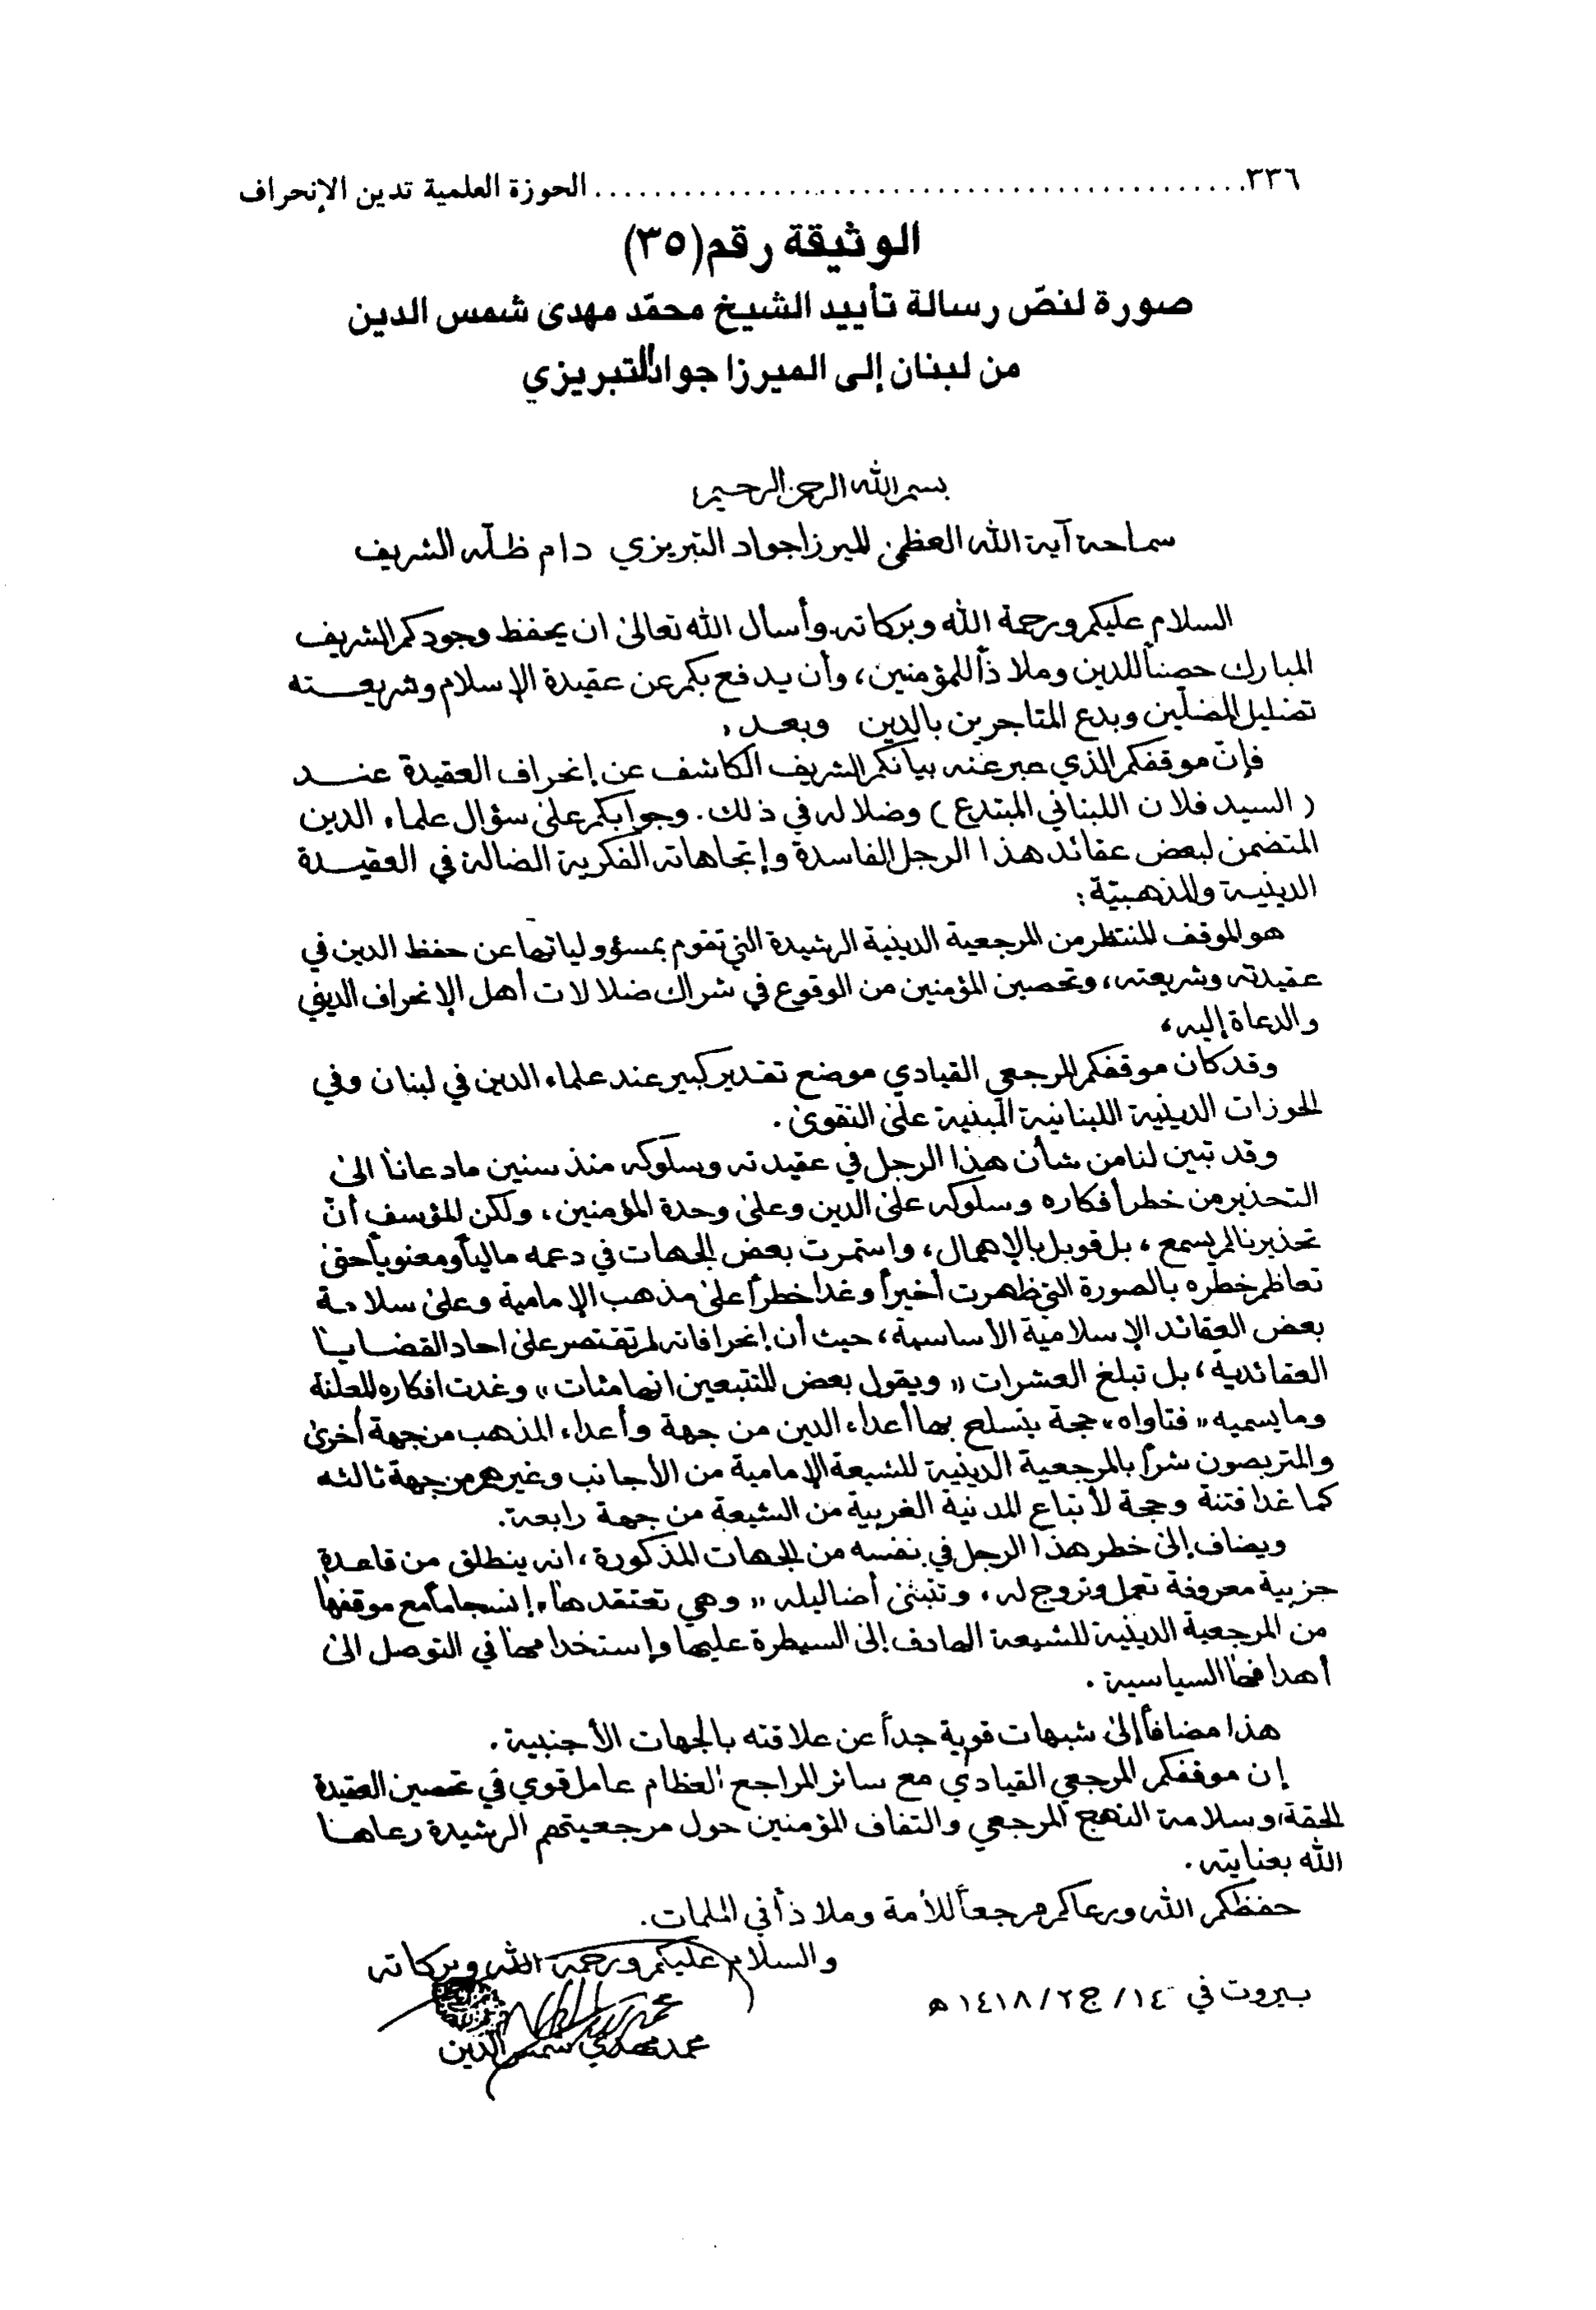 ٣٣٦............................................. الحوزة العلمية تدين الإنحراف
الوثيقة رقم(٣٥)
صورة لنصّ رسالة تأييد الشيخ محمّد مهدى شمس الدين
من لبنان إلى الميرزا جواد التبريزي
بسم الله الرحمن الرحيم
سماحة آية الله العظمى الميرزا جواد التبريزي دام ظلّه الشريف
السلام عليكم ورحمة الله وبركاته. وأسأل الله تعالى ان يحفظ وجودكم الشريف
المبارك حصناً للدين وملاذاً للمؤمنين، وأن يدفع بكم عن عقيدة الإسلام وشريعته
تضليل المضلّين وبدع المتاجرين بالدين وبعد،
فإنّ موقفكم الذي عبر عنه بيانكم الشريف الكاشف عن إنحراف العقيدة عند
(السيد فلان اللبناني المبتدع) وضلاله في ذلك. وجوابكم على سؤال علماء الدين
المتضمن لبعض عقائد هذا الرجل الفاسدة وإتجاهاته الفكرية الضالة في العقيدة
الدينية والمذهبيّة:
هو الموقف المنتظر من المرجعية الدينية الرشيدة التي تقوم بمسؤولياتها عن حفظ الدين في
عقيدته وشريعته، وتحصين المؤمنين من الوقوع في شراك ضلالات أهل الإنحراف الديني
والدعاة إليه،
وقد كان موقفكم المرجعي القيادي موضع تقدير كبير عند علماء الدين في لبنان وفي
الحوزات الدينية اللبنانية المبنية على التقوى.
وقد تبين لنا من شأن هذا الرجل في عقيدته وسلوكه منذ سنين ما دعانا الى
التحذير من خطر أفكاره وسلوكه على الدين وعلى وحدة المؤمنين، ولكن المؤسف أنّ
تحذيرنا لم يسمع، بل قوبل بالإهمال، واستمرت بعض الجهات في دعمه مالياً ومعنوياً حتى
تعاظم خطره بالصورة التي ظهرت أخيراً وغدا خطراً على مذهب الإمامية وعلى سلامة
بعض العقائد الإسلامية الأساسية، حيث أن إنحرافاته لم تقتصر على احاد القضايا
العقائدية، بل تبلغ العشرات «ويقول بعض المتتبعين انها مئات» وغدت افكاره المعلنة
وما يسميه «فتاواه» حجة يتسلح بها أعداء الدين من جهة وأعداء المذهب من جهة أخرى
والمتربصون شراً بالمرجعية الدينية للشيعة الإمامية من الأجانب وغيرهم من جهة ثالثه
كما غدا فتنة وحجة لأتباع المدنية الغربية من الشيعة من جهة رابعة.
ويضاف إلى خطر هذا الرجل في نفسه من الجهات المذكورة، انه ينطلق من قاعدة
حزبية معروفة تعمل وتروج له، وتتبنى أضاليله «وهي تعتقدها» إنسجاماً مع موقفها
من المرجعية الدينية للشيعة الهادف إلى السيطرة عليها وإستخدامها في التوصل الى
أهدافها السياسية.
هذا مضافاً إلى شبهات قوية جداً عن علاقته بالجهات الأجنبية.
إن موقفكم المرجعي القيادي مع سائر المراجع العظام عامل قوي في تحصين العقيدة
الحقة، وسلامة النهج المرجعي والتفاف المؤمنين حول مرجعيتهم الرشيدة رعاها
الله بعنايته.
حفظكم الله ورعاكم مرجعاً للأمة وملاذاً في الملمات.
والسلام عليكم ورحمة الله وبركاته
بيروت في ١٤/ج٢/١٤١٨ ه
محمد مهدي شمس الدين